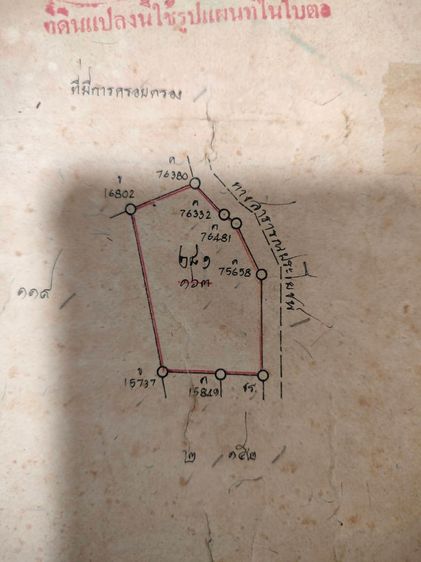 ที่ดินแปลงนี้ใช้รูปแผนที่ในใบต่อ
ที่มีการครอบครอง
ค
76380
ข
16802
ค
76332
ค
76481
ทางสาธารณประโยชน์
๒๘๑
๑๖๓
75658
๑๑๙
ข
15737
ค
15849
ชร.
๒
๑๕๒